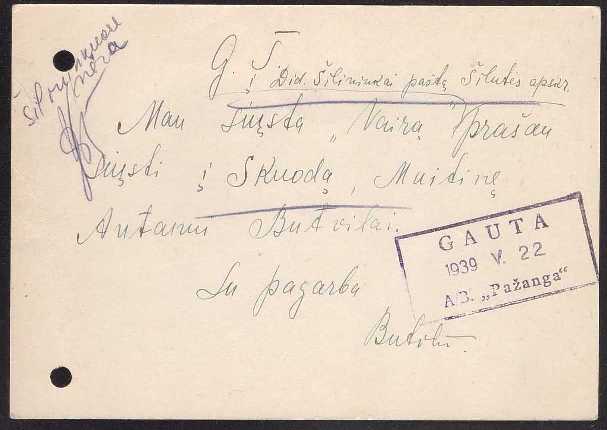 Šilininkuose
nėra
G. T.
į Did. Šilininkai paštą Šilutės apskr.
Man siųstą „Vairą" prašau
siųsti į Skuodą, Muitinę
Antanui Butvilai.
Su pagarba
GAUTA
1939 V. 22
A/B. „Pažanga"